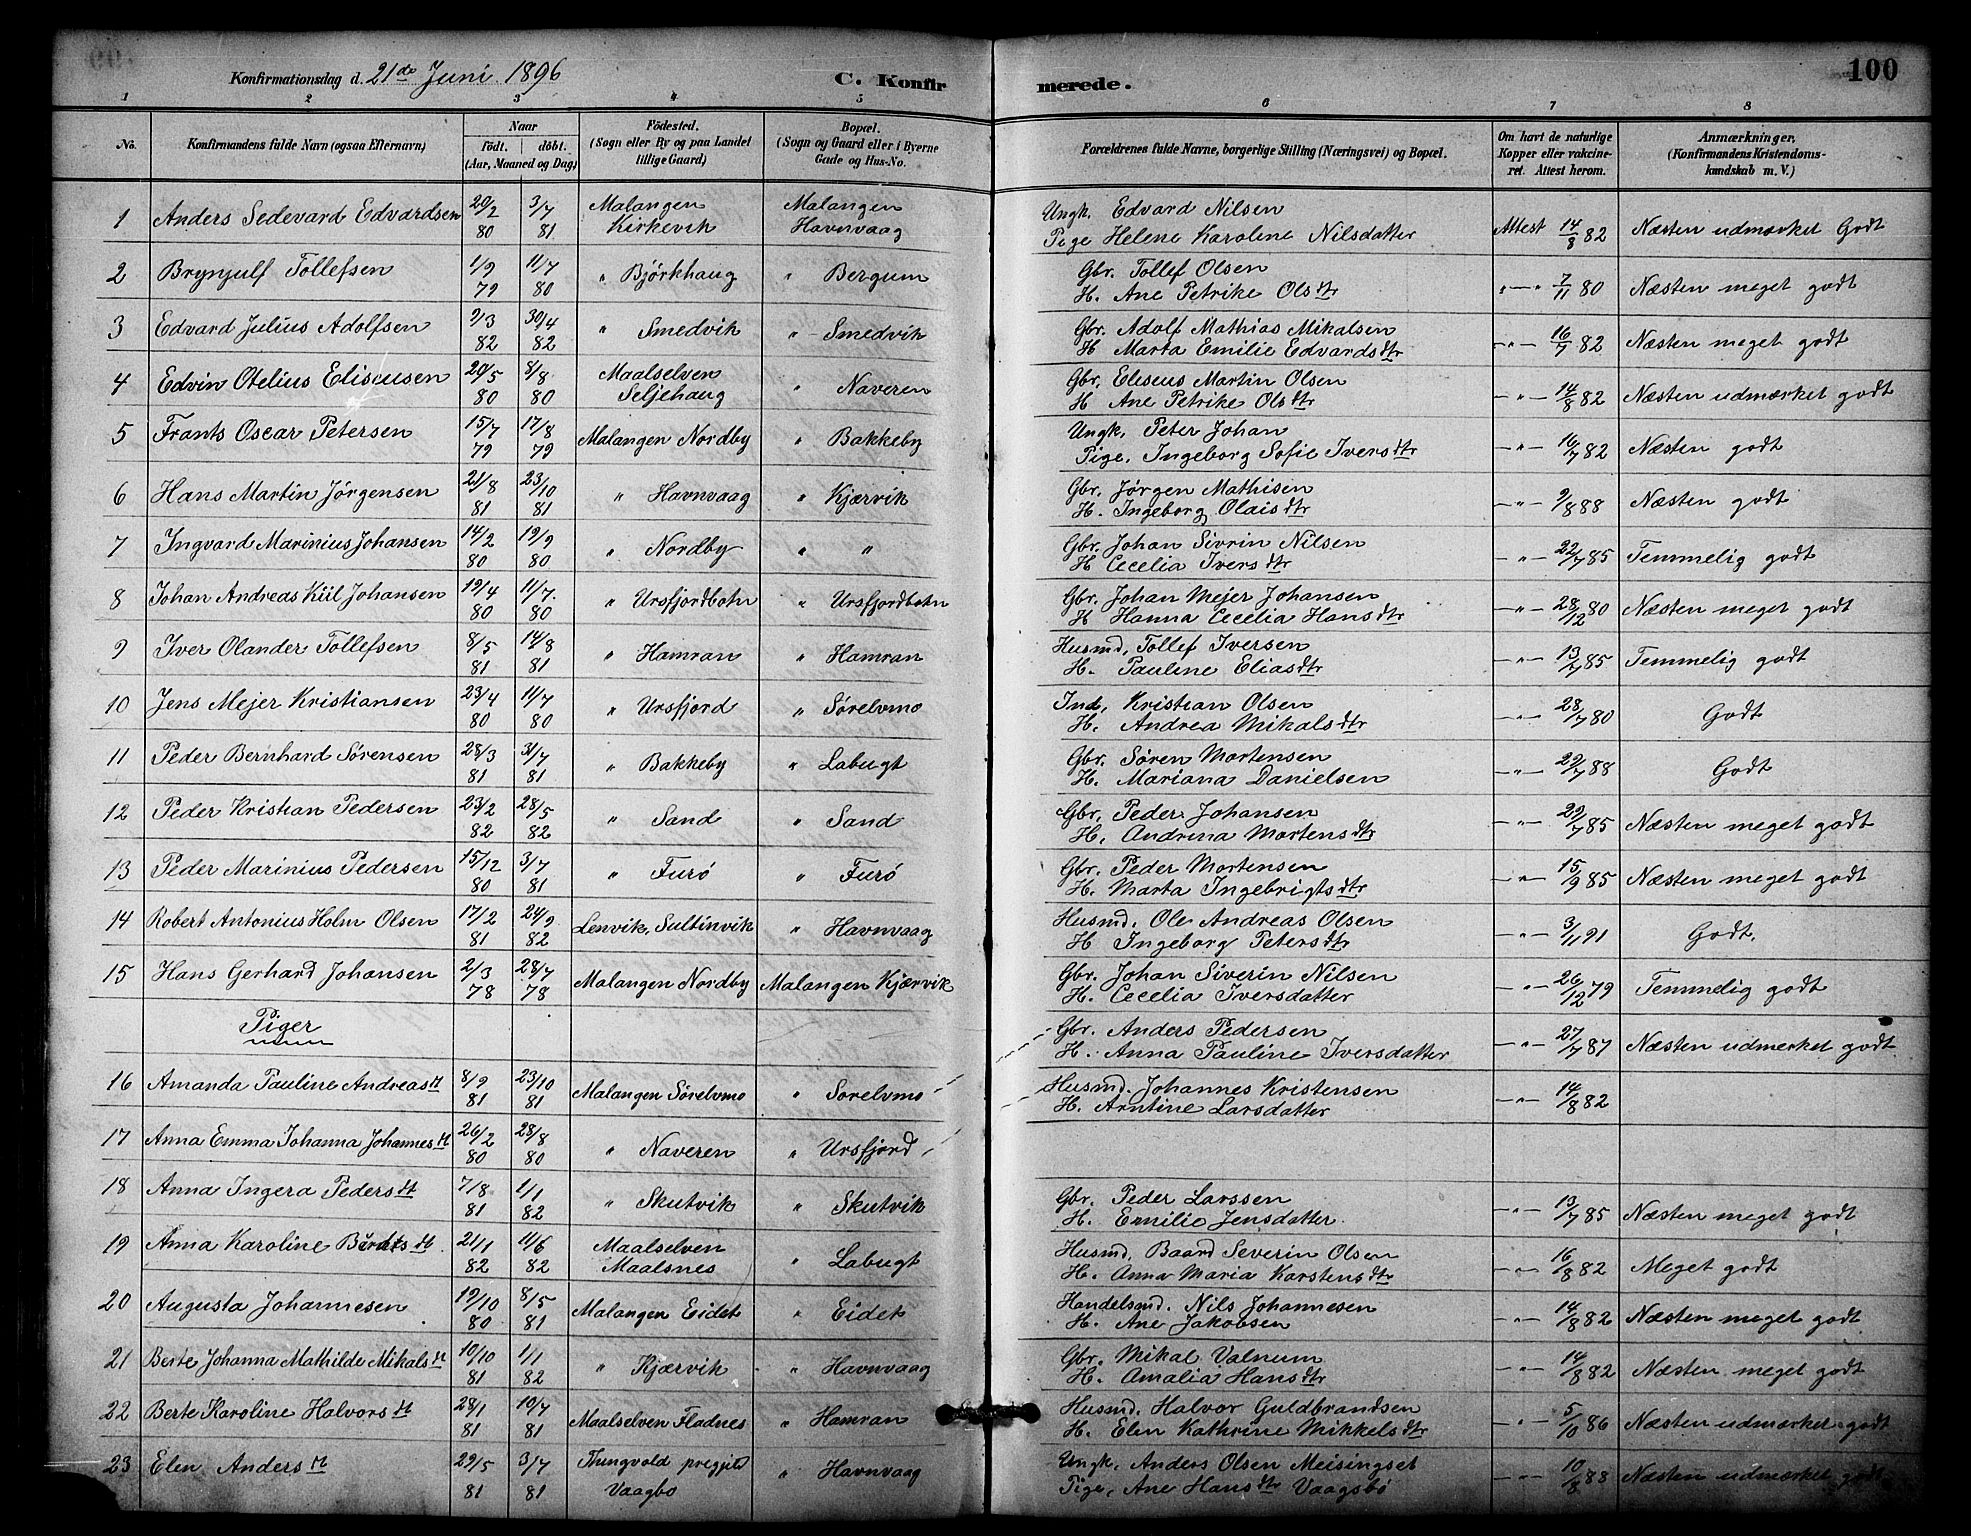 Konfirmationsdag d. 21de Juni 1896 C. Konfirmerede. 100
1 2 3 4 5 6 7 8
No. Konfirmandens fulde Navn (ogsaa Efternavn) Naar Født. døbt. (Aar, Maaned og Dag) Fødested. (Sogn eller By og paa Landet tillige Gaard) Bopæl. (Sogn og Gaard eller i Byerne Gade og Hus-No. Forældrenes fulde Navne, borgerlige Stilling (Næringsvei) og Bopæl. Om havt de naturlige Kopper eller vakcineret. Attest herom. Anmærkninger. (Konfirmandens Kristendomskundskab m. V.)
1 Anders Sedevard Edvardsen 20/2 80 3/7 81 Malangen Kirkevik Malangen Havnvaag Ungk. Edvard Nilsen Pige Helene Karoline Nilsdatter Attest 14/8 82 Næsten udmærket Godt
2 Brynjulf Tollefsen 1/9 79 11/7 80 " Bjørkhaug " Bergum Gbr. Tollef Olsen H. Ane Petrike Olsdtr "—" 7/11 80 Næsten meget godt
3 Edvard Julius Adolfsen 9/3 82 30/4 82 " Smedvik " Smedvik Gbr. Adolf Mathias Mikalsen H Marta Emilie Edvardsdtr —"— 16/7 82 Næsten meget godt
4 Edvin Otelius Eliseusen 20/5 80 8/8 80 Maalselven Seljehaug " Naveren Gbr. Eliseus Martin Olsen H Ane Petrike Olsdtr —"— 14/8 82 Næsten udmærket godt
5 Frants Oscar Petersen 15/7 79 17/8 79 Malangen Nordby " Bakkeby Ungk. Peter Johan Pige. Ingeborg Sofie Iversdtr —"— 16/7 82 Næsten godt
6 Hans Martin Jørgensen 21/8 81 23/10 81 " Havnvaag " Kjærvik Gbr. Jørgen Mathisen H. Ingeborg Olaisdtr —"— 9/8 88 Næsten godt
7 Ingvard Marinius Johansen 14/2 80 19/9 80 " Nordby " " Gbr. Johan Sivrin Nilsen H Cecelia Iversdtr —"— 22/7 85 Temmelig godt
8 Johan Andreas Kiil Johansen 19/4 80 11/7 80 " Ursfjordbotn " Ursfjordbotn Gbr. Johan Mejer Johansen H Hanna Cecelia Hansdtr —"— 28/12 80 Næsten meget godt
9 Iver Olander Tollefsen 8/5 81 14/8 81 " Hamran " Hamran Husmd. Tollef Iversen H. Pauline Eliasdtr —"— 13/7 85 Temmelig godt
10 Jens Mejer Kristiansen 23/4 80 11/7 80 " Ursfjord " Sørelvmo Ind. Kristian Olsen H. Andrea Mikalsdtr —"— 28/7 80 Godt
11 Peder Bernhard Sørensen 28/3 81 31/7 81 " Bakkeby " Labugt Gbr. Søren Mortensen H. Mariana Danielsen —"— 29/7 88 Godt
12 Peder Kristian Pedersen 23/2 82 28/5 82 " Sand " Sand Gbr. Peder Johansen H. Andrina Mortensdtr —"— 22/7 85 Næsten meget godt
13 Peder Marinius Pedersen 15/12 80 3/7 81 " Furø " Furø Gbr. Peder Mortensen H. Marta Ingebrigtsdtr —"— 15/9 85 Næsten meget godt
14 Robert Antonius Holm Olsen 17/2 81 24/9 82 Lenvik, Sultinvik " Havnvaag Husmd. Ole Andreas Olsen H Ingeborg Petersdtr —"— 3/11 91 Godt.
15 Hans Gerhard Johansen 2/3 78 28/7 78 Malangen Nordby Malangen Kjærvik Gbr. Johan Siverin Nilsen H. Cecelia Iversdatter —"— 26/12 79 Temmelig godt
Piger Gbr. Anders Pedersen H. Anna Pauline Iversdatter —"— 27/7 87 Næsten udmærket godt
16 Amanda Pauline Andreasdt 8/9 81 23/10 81 Malangen Sørelvmo " Sørelvmo Husmd. Johannes Kristensen H. Arntine Larsdatter —"— 14/8 82
17 Anna Emma Johanna Johannesdt 26/2 80 28/8 80 " Naveren " Ursfjord
18 Anna Ingera Pedersdt 7/8 81 1/1 82 " Skutvik " Skutvik Gbr. Peder Larssen H. Emilie Jensdatter. —"— 13/7 85 Næsten meget godt
19 Anna Karoline 21/1 82 11/6 82 Maalselven Maalsnes " Labugt Husmd. Baard Severin Olsen H. Anna Maria Karstensdtr —"— 16/8 82 Meget godt
20 Augusta Johannesen 19/10 80 8/5 81 Malangen Eidet " Eidet Handelsmd. Nils Johannesen H. Ane Jakobsen —"— 14/8 82 Næsten meget godt
21 Berte Johanna Mathilde Mikalsdt 10/10 81 1/1 82 " Kjærvik " Havnvaag Gbr. Mikal Valnum H. Amalia Hansdtr —"— 14/8 82 Næsten meget godt
22 Berte Karoline Halvorsdt 28/1 81 10/7 81 Maalselven Fladnes " Hamran Husmd. Halvor Guldbrandsen H. Elen Kathrine Mikkelsdtr —"— 5/10 86 Næsten udmærket godt
23 Elen Andersdt 29/5 81 3/7 81 Thingvold Vaagbø " Havnvaag Ungk. Anders Olsen Meisingset Pige, Ane Hansdtr Vaagsbø —"— 10/8 88 Næsten udmærket godt